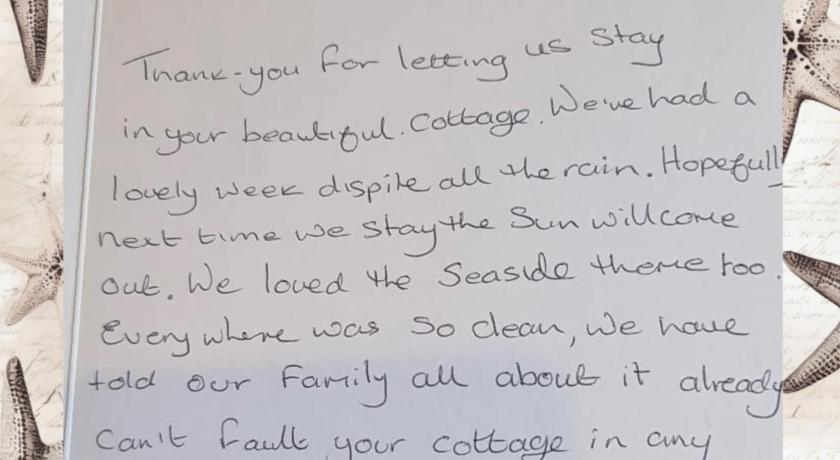 Thank-you for letting us stay
in your beautiful. Cottage. We've had a
lovely week dispite all the rain. Hopefull
next time we stay the Sun will come
out. We loved the Seaside theme too.
Everywhere was so clean, We have
told our Family all about it already
Can't fault your cottage in any